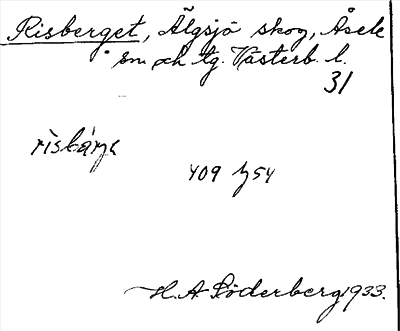 Risberget, Älgsjö skog, Åsele
sn. och tg. Västerb. l.
31
409 y54
H. A. Söderberg 1933.